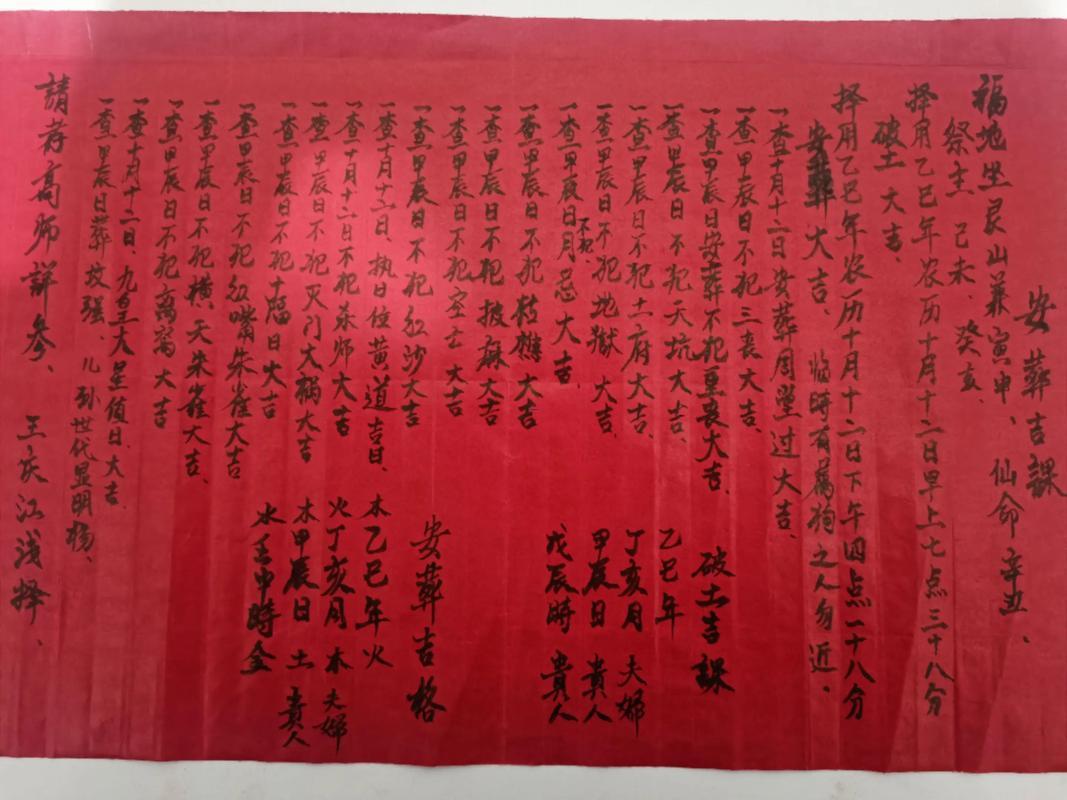 安葬吉課
福地坐艮山兼寅申、仙命辛丑、
祭主 己未、癸亥、
择用乙巳年农历十月十二日早上七点三十八分
破土大吉、
择用乙巳年农历十月十二日下午四点一十八分
安葬大吉、临時有属狗之人勿近、
一查十月十二日安葬周堂过大吉、
一查甲辰日不犯三丧大吉、
一查甲辰日安葬不犯重丧大吉、
一查甲辰日不犯天坑大吉、
一查甲辰日不犯土府大吉、
一查甲辰日不犯地獄大吉、
一查甲辰日不犯月忌大吉、
一查甲辰日不犯 大吉
一查甲辰日不犯披麻大吉
一查甲辰日不犯空亡大吉
一查甲辰日不犯红沙大吉
一查十月十二日、执日位黄道吉日、
一查十月十二日不犯杀师大吉
一查甲辰日不犯灭门大祸大吉
一查甲辰日不犯 日大吉
一查甲辰日不犯红嘴朱雀大吉
一查甲辰日不犯横天朱雀大吉、
一查甲辰日不犯离窩大吉
一查十月十二日、九 大星值日、大吉
一查甲辰日葬坟强、儿孙世代显明扬、
破土吉課
乙巳年
丁亥月 夫婦
甲辰日 貴人
戊辰時 貴人
安葬吉格
木乙巳年火
火丁亥月木 夫婦
木甲辰日土 貴人
水壬申時金
請存高师詳參、王庆江浅择、